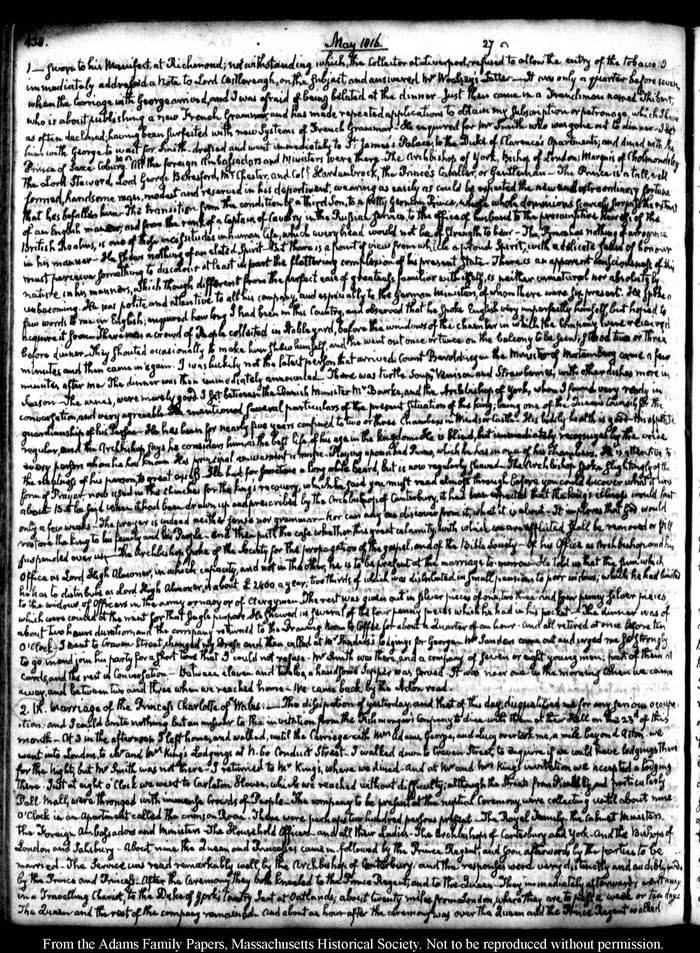 438.
May 1816.
27
1— swore to his Manifest, at Richmond; notwithstanding which, the Collector at Liverpool, refused to allow the entry of the tobacco. I
immediately addressed a Note to Lord Castlereagh, on the subject and answered Mr Letter— It was only a quarter before seven
when the carriage with George arrived, and I was afraid of being belated at the dinner. Just then came in a Frenchman named
who is about publishing a new French Grammar, and has made repeated applications to obtain my subscription or patronage, which I have
as often declined, having been surfeited with new Systems of French Grammar. He enquired for Mr Smith who was gone out to dinner— I left
him with George to wait for Smith. dressed and went immediately to St. James's Palace, to the Duke of Clarence's Apartments; and dined with the
Prince of Saxe Coburg. All the foreign Ambassadors and Ministers were there. The Archbishop of York, Bishop of London, Marquis of Cholmondeley
The Lord Steward, Lord George Beresford, Mr Chester, and Coll. Hardenbrock, the Prince's Cavalier, or Gentleman— The Prince is a tall, well
formed, handsome man, modest and reserved in his deportment, wearing as easily as could be expected the new and extraordinary fortune
that has befallen him. The transition from the condition of a third Son, to a petty German Prince, whose whole dominions scarcely surpass the extent
of an English manor, and from the rank of a Captain of Cavalry in the Russian service, to the office of husband to the presumptive heiress of the
British Realms, is one of those vicissitudes in human life, which every head would not be of strength to bear— The Prince has nothing of arrogance
in his manner— He shews nothing of an elated spirit— But there is a point of view from which a proud Spirit, with a delicate sense of honour
must perceive something to discolour at least in part the flattering complexion of his present State. There is an apparent consciousness of this
nature in his manners, which though different from the perfect ease of greatness familiar with itself, is neither unnatural nor absolutely
unbecoming. He was polite and attentive to all his company, and especially to the German Ministers, of whom there were six present. He spoke a
few words to me in English; enquired how long I had been in this Country, and observed that he spoke English very imperfectly himself but hoped to
acquire it soon— There was a crowd of People collected in Stable yard, before the windows of the chamber in which the Company were received
before dinner. They shouted occasionally to make him shew himself, and he went out once or twice on the balcony to be seen; stood two or three
minutes and then came in again. I was luckily not the latest person that arrived; Count the Minister of came a few
minutes after me. The dinner was then immediately announced— There was turtle Soup, Venison and Strawberries, with other dishes more in
Season— The wines, were merely good. I sat between the Danish Minister Mr Bourke, and the Archbishop of York, whom I found very ready in
conversation, and very agreeable. He mentioned several particulars of the present situation of the king; being one of the Queen's Council for the
guardianship of his Person— He has been for nearly five years confined to two or three Chambers in Windsor Castle. His bodily health is good— His appetite
regular, and the Archbishop says he considers him as the best life of his age in the kingdom— He is blind, but immediately recognizes by the voice
every person whom he has known. His principal amusement is music. Playing upon a Piano, which he has in one of his chambers. He is attentive to
the cleanliness of his person, to great excess. He had for sometime a long white beard, but is now regularly shaved— The Archbishop spoke slightingly of the
form of Prayer, now used in the churches for the king's recovery, which he said you must read almost through before you could discover what it was
about. But he said when it had been drawn up and prescribed by the Archbishop of Canterbury, it had been expected that the king's illness would last
only a few weeks— The prayer is indeed neither sense nor grammar— Nor can any one discover from it, what it is about— It implores that God would
restore the king to his family and his People— And then puts the case whether this great calamity with which we are afflicted shall be removed or still
suspended over us— The Archbishop spoke of the Society for the propagation of the gospel, and of the Bible Society— Of his Office as Archbishop, and his
Office as Lord High Almoner, in which capacity, and not in the other, he is to be present at the marriage to-morrow— He told us that the sum which
he has to distribute as Lord High Almoner, is about £2400 a year; two thirds of which was distributed in small pensions to poor widows; which he had limited
to the widows of Officers in the army or navy or of Clergymen. The rest was given out in silver pieces of one, two, three and four penny silver pieces
which were coined at the mint for that single purpose— He showed us several of the four penny pieces which he had in his pocket— The dinner was of
about two hours duration, and the company returned to the Drawing Room to Coffee for about a quarter of an hour— And all retired at once before ten
O'Clock— I went to Craven Street, changed my Dress and then called at Mr lodgings for George— Mr Sanders came out and urged me so strongly
to go in and join his party for a short time that I could not refuse— Mr Smith was there, and a company of seven or eight young men; part of them at
Cards, and the rest in Conversation— Between eleven and twelve, a handsome Supper was served. It was near one in the morning when we came
away, and between two and three when we reached home— We came back by the Acton road.
2. IX. Marriage of the Princess Charlotte of Wales.— The dissipation of yesterday, and that of this day, disqualified me for any serious occupa-
tion. and I could write nothing but an answer to the invitation from the Fishmonger's Company to dine with them at their Hall on the 23d of this
month— At 3 in the afternoon I left home, and walked, until the Carriage with Mrs Adams, George, and Lucy overtook me, a mile beyond Acton, we
went into London, to Mr and Mrs King's Lodgings at N. 60 Conduit Street— I walked down to Craven Street, to enquire if we could have lodgings there
for the Night; but Mr Smith was not there— I returned to Mr King's, where we dined— And at Mr and Mrs King's invitation we accepted a lodging
there— Just at eight o'Clock we went to Carleton House, which we reached without difficulty; although the Streets from Piccadilly and particularly
Pall Mall, were thronged with immense crowds of People— The company to be present at the nuptial Ceremony were collecting until about nine
O'Clock in an Apartment called the crimson Room. There were perhaps two hundred persons present— The Royal Family, the Cabinet Ministers
the Foreign Ambassadors and Ministers— The Household Officers— and all their Ladies— The Archbishops of Canterbury and York— And the Bishops of
London and Salisbury— About nine the Queen and Princesses came in followed by the Prince Regent, and soon afterwards by the parties to be
married— The Service was read remarkably well by the Archbishop of Canterbury. and the responses were very distinctly and audibly made
by the Prince and Princess. After the Ceremony they both kneeled to the Prince Regent, and to the Queen— They immediately afterwards went away
in a Travelling Chariot, to the Duke of York's Country Seat at Oatlands, about twenty miles from London, where they are to pass a week or ten days
The Queen and the rest of the company remained— And about an hour after the ceremony was over the Queen and the Prince Regent walked
From the Adams Family Papers, Massachusetts Historical Society. Not to be reproduced without permission.